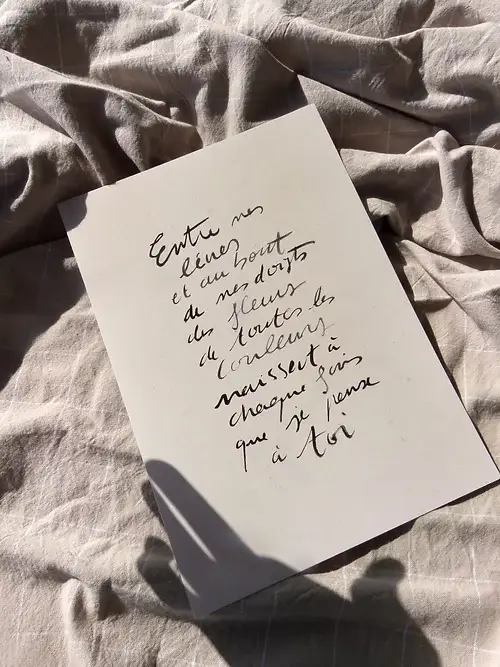 Entre mes
lèvres
et au bout
de mes doigts
des fleurs
de toutes les
couleurs
naissent à
chaque fois
que je pense
à toi